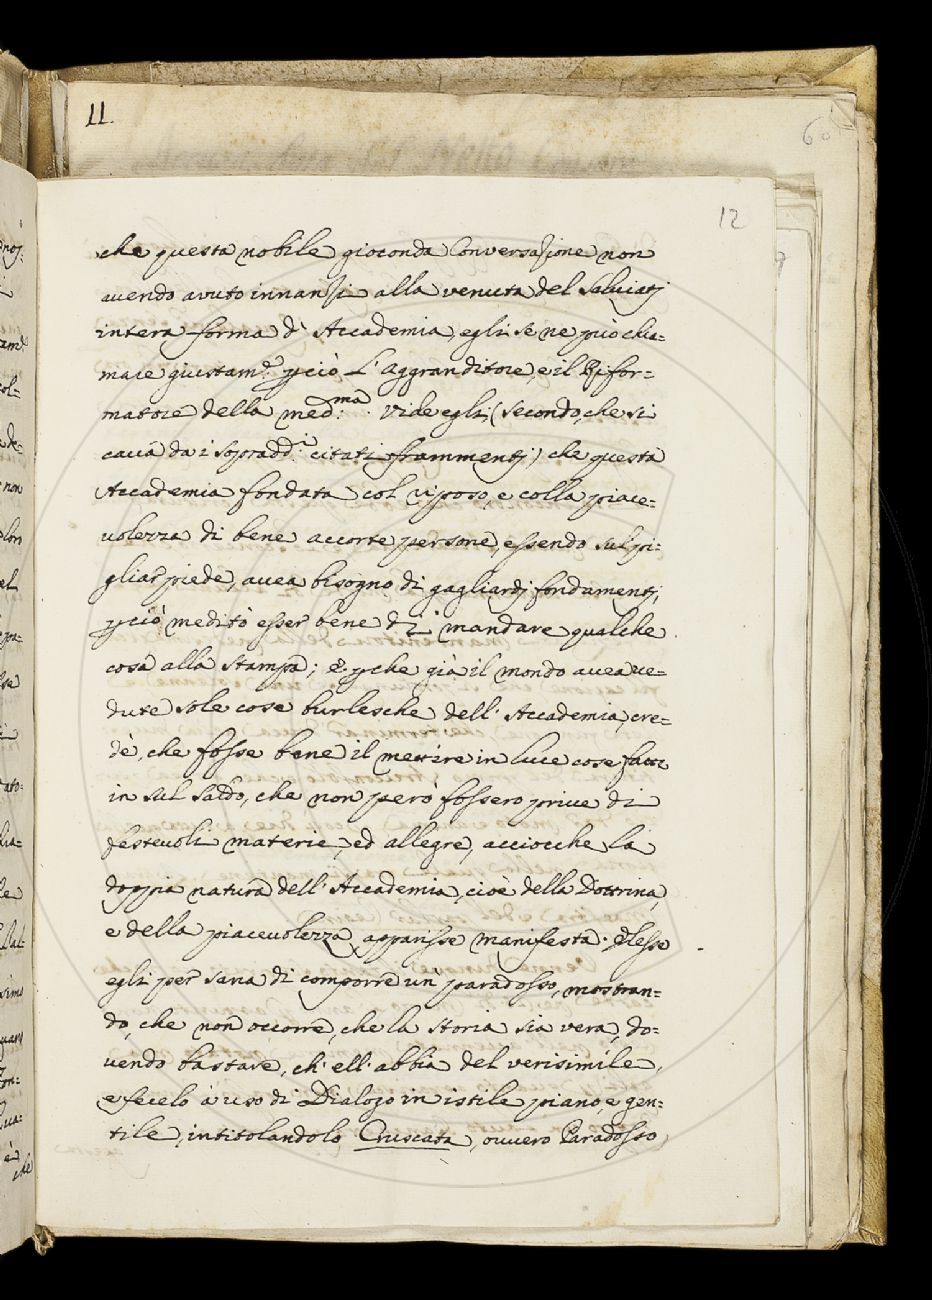 11.
60
12
che questa nobile gioconda Conversazione non
avendo avuto innanzi alla venuta del Salviatj
intera forma d' Accademia, egli se ne può chia=
mare giustam.e p ciò L' Aggranditore, e il Rifor=
matore della med.ma. Vide egli, (secondo, che si
cava da i sopradd.i citati frammentj) che questa
Accademia fondata col riposo, e colla piace=
volezza di bene accorte persone, essendo sul pi=
gliar piede, avea bisogno di gagliardj fondamentj,
p ciò meditò esser bene di mandare qualche
cosa alla stampa; e pche già il mondo avea ve=
dute sole cose burlesche dell' Accademia, cre=
dè, che fosse bene il mettere in luce cose fatte
in sul saldo, che non però fossero prive di
festevoli materie, ed allegre, acciocche la
doppia natura dell' Accademia, cioè della Dottrina,
e della piacevolezza apparisse manifesta. Elesse
egli per sana di comporre un paradosso, mostran=
do, che non occorre, che la storia sia vera, do=
vendo bastare, ch' ell' abbia del verisimile,
e fecelo a uso di Dialogo in istile piano, e gen=
tile, intitolandolo Cruscata, ovvero Paradosso